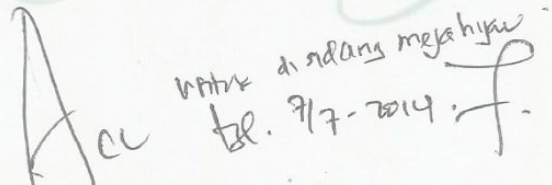 Acc untuk di sidang meja hijau
tgl. 7/7-2014.